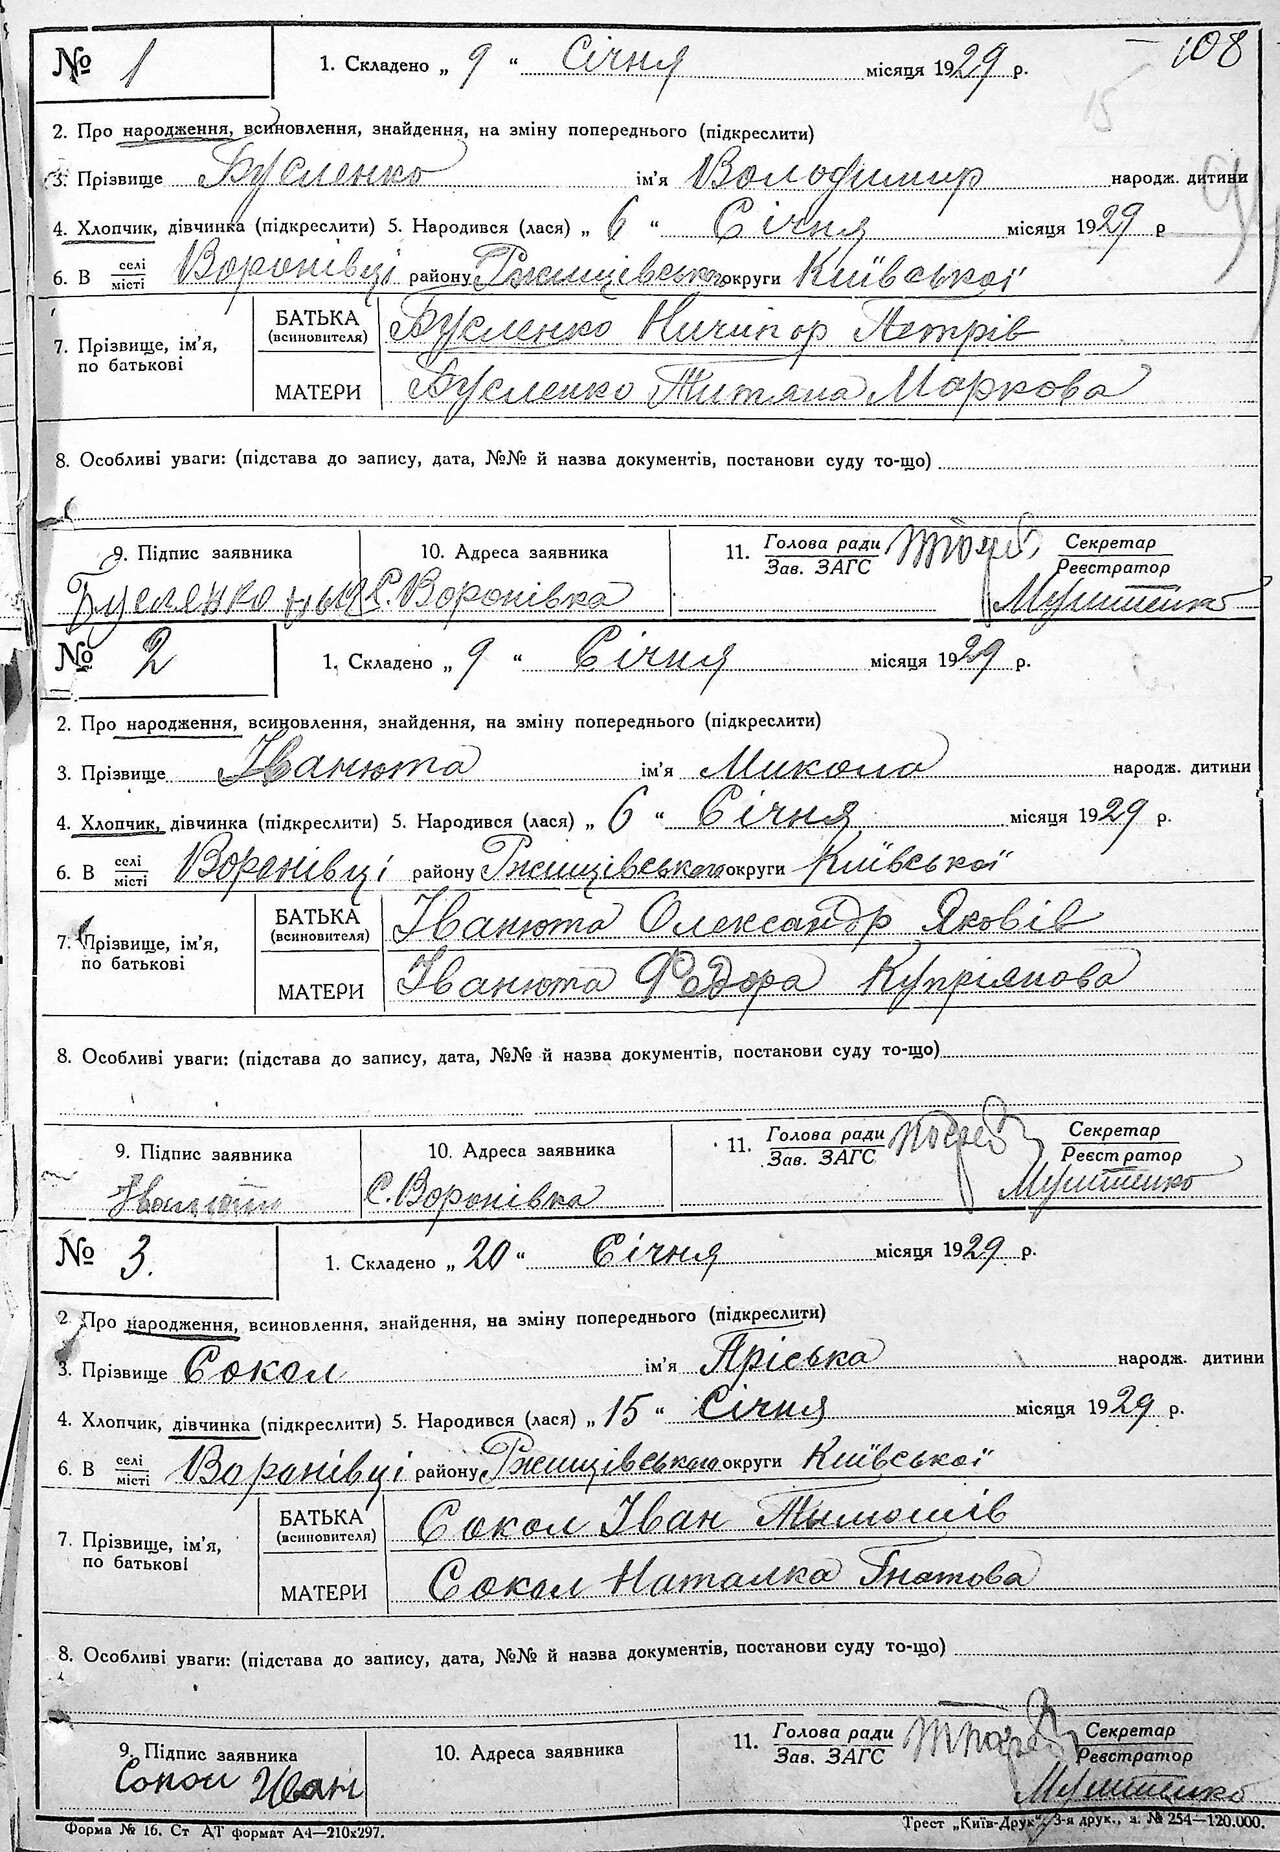 № 1 1. Складено „ 9 “ Січня місяця 1929 р. 108
15
2. Про народження, всиновлення, знайдення, на зміну попереднього (підкреслити)
3. Прізвище Бусленко ім'я Володимир народж. дитини
4. Хлопчик, дівчинка (підкреслити) 5. Народився (лася) „ 6 “ Січня місяця 1929 р
6. В селі/місті Воронівці району Ржищівського округи Київської
7. Прізвище, ім'я, по батькові
БАТЬКА (всиновителя) Бусленко Ничипор Петрів
МАТЕРИ Бусленко Титяна Маркова
8. Особливі уваги: (підстава до запису, дата, №№ й назва документів, постанови суду то-що)
9. Підпис заявника 10. Адреса заявника 11. Голова ради/Зав. ЗАГС Секретар/Реєстратор
Буслянко С. Воронівка
№ 2 1. Складено „ 9 “ Січня місяця 1929 р.
2. Про народження, всиновлення, знайдення, на зміну попереднього (підкреслити)
3. Прізвище Іванюта ім'я Микола народж. дитини
4. Хлопчик, дівчинка (підкреслити) 5. Народився (лася) „ 6 “ Січня місяця 1929 р.
6. В селі/місті Воронівці району Ржищівського округи Київської
7. Прізвище, ім'я, по батькові
БАТЬКА (всиновителя) Іванюта Олександр Яковів
МАТЕРИ Іванюта Федора Купріянова
8. Особливі уваги: (підстава до запису, дата, №№ й назва документів, постанови суду то-що)
9. Підпис заявника 10. Адреса заявника 11. Голова ради/Зав. ЗАГС Секретар/Реєстратор
С. Воронівка
№ 3. 1. Складено „ 20 “ Січня місяця 1929 р.
2 Про народження, всиновлення, знайдення, на зміну попереднього (підкреслити)
3. Прізвище Сокол ім'я Пріська народж. дитини
4. Хлопчик, дівчинка (підкреслити) 5. Народився (лася) „ 15 “ Січня місяця 1929 р.
6. В селі/місті Воронівці району Ржищівського округи Київської
7. Прізвище, ім'я, по батькові
БАТЬКА (всиновителя) Сокол Іван Тимошів
МАТЕРИ Сокол Наталка Гнатова
8. Особливі уваги: (підстава до запису, дата, №№ й назва документів, постанови суду то-що)
9. Підпис заявника 10. Адреса заявника 11. Голова ради/Зав. ЗАГС Секретар/Реєстратор
Сокол Иван
Форма № 16. Ст АТ формат А4—210х297. Трест „Київ-Друк“, 3-я друк., з. № 254—120.000.